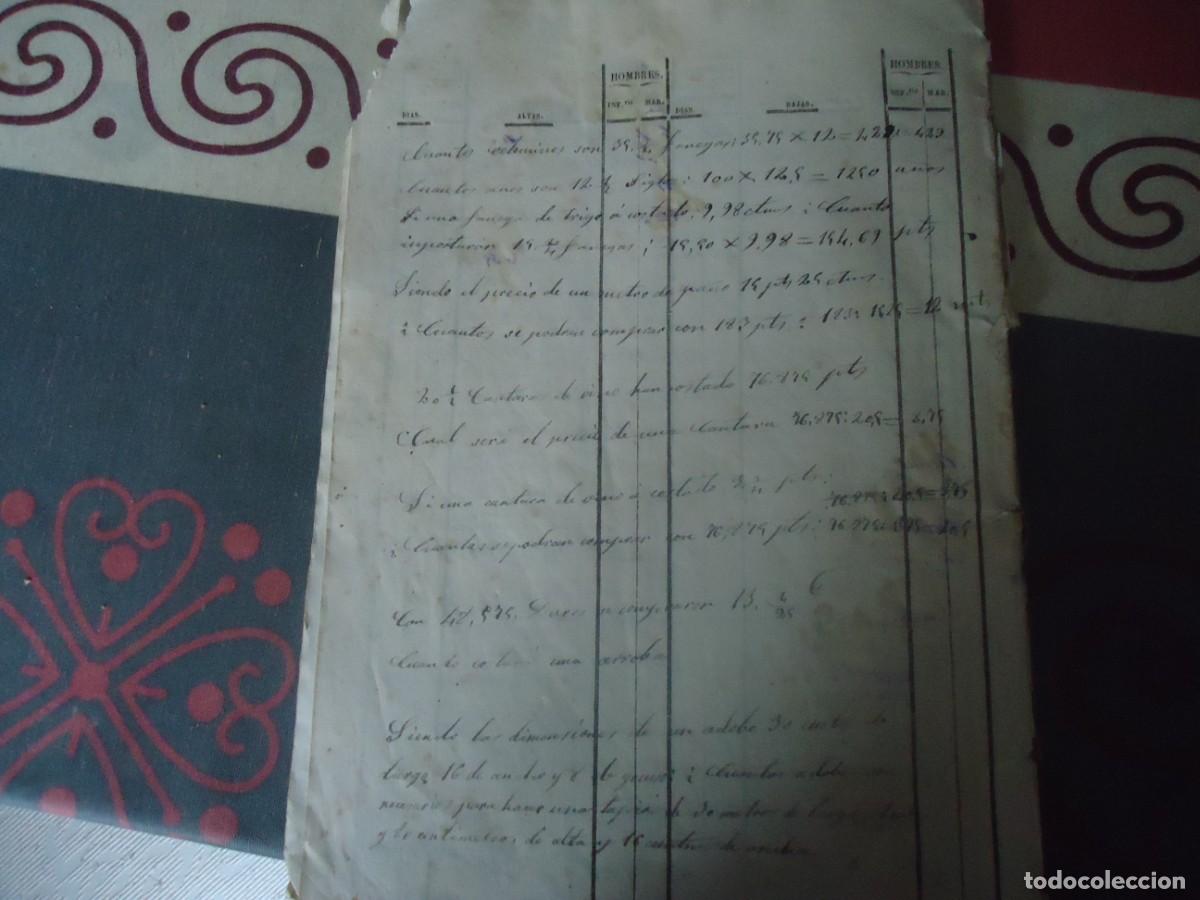 HOMBRES. HOMBRES.
DIAS. ALTAS. INF.es MAR. DIAS. BAJAS. INF.es MAR.
Cuantos celemines son 35, fanegas; 35,75 × 12 = 429 = 429
Cuantos anos son 12 ½ Siglos: 100 × 12,5 = 1250 anos
Si una fanega de trigo á costado, 9,98 ctmos ¿ Cuanto
importaran 15 fanegas ; 15,50 × 9,98 = 154,69 pts
Siendo el precio de un metro de paño 15 pts 25 ctmos.
¿ Cuantos se podran comprar con 183 pts : 183: 15,25 = 12 mt
20 ½ Cantaras de vino han costado 76.875 pts
¿ Cual sera el precio de una Cantara 76.875: 20,5 = 3,75
Si una cantara de vino á costado 3 pts:
76.875: 20,5 = 3,75
¿ Cuantas se podran comprar con 76,875 pts: 76.875: 3,75 = 20,5
Con 42,575. se compraron 13. 25
Cuanto costará una arroba
Siendo las dimensiones de un adobe 30 de
largo 16 de ancho y 8 de grueso; ¿ Cuantos adobes
necesarios para hacer una tapia de 30 metros de largo
y centimetros, de alta y 16 de ancha
todocoleccion